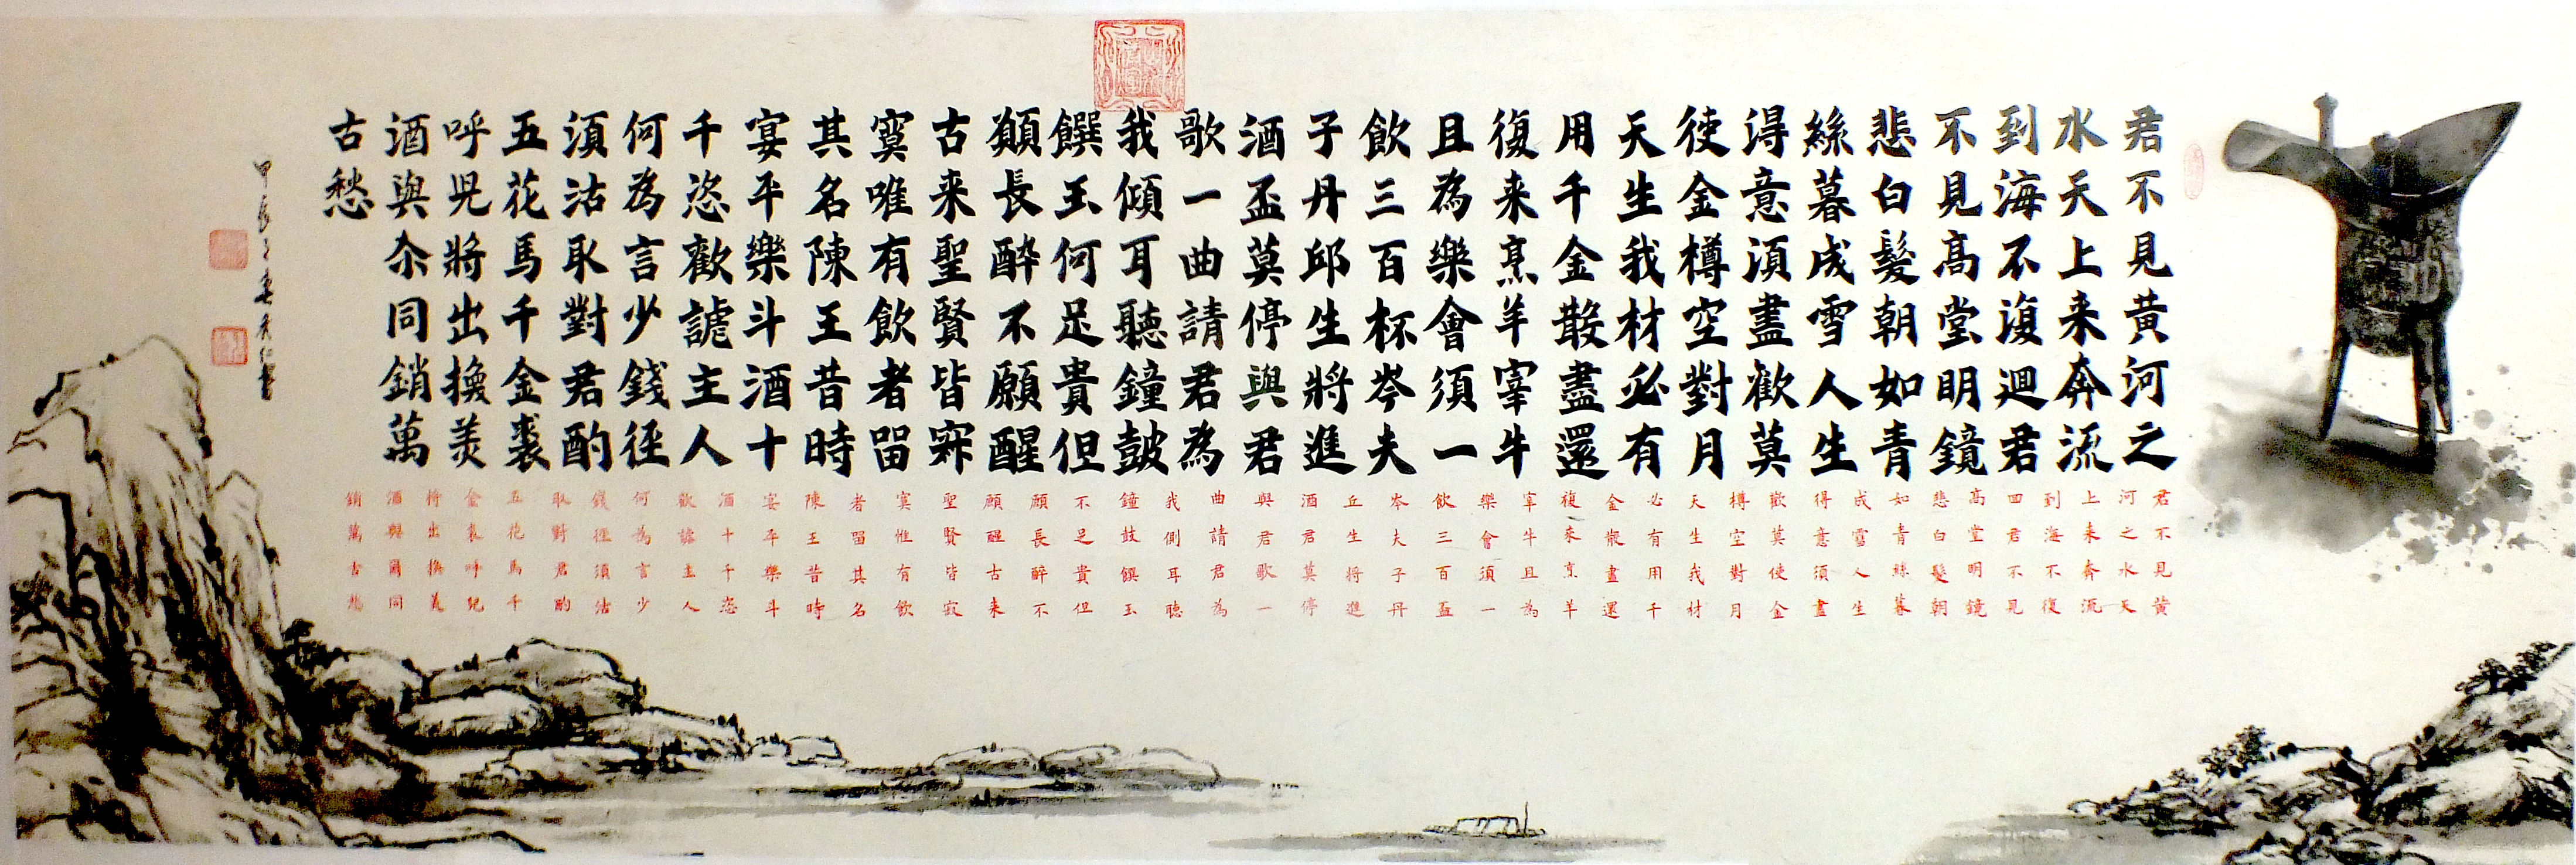 君不見黃河之
水天上来奔流
到海不復迴君
不見高堂明鏡
悲白髮朝如青
絲暮成雪人生
得意須盡歡莫
使金樽空對月
天生我材必有
用千金散盡還
復来烹羊宰牛
且為樂會須一
飲三百杯岑夫
子丹邱生將進
酒盃莫停與君
歌一曲請君為
我傾耳聽鐘鼓
饌玉何足貴但
願長醉不願醒
古来聖賢皆寂
寞唯有飲者留
其名陳王昔時
宴平樂斗酒十
千恣歡謔主人
何為言少錢徑
須沽取對君酌
五花馬千金裘
呼兒將出換美
酒與尒同銷萬
古愁
甲辰之春
君不見黃
河之水天
上来奔流
到海不復
回君不見
高堂明鏡
悲白髮朝
如青絲暮
成雪人生
得意須盡
歡莫使金
樽空對月
天生我材
必有用千
金散盡還
復來烹羊
宰牛且為
樂會須一
飲三百盃
岑夫子丹
丘生將進
酒君莫停
與君歌一
曲請君為
我側耳聽
鐘鼓饌玉
不足貴但
願長醉不
願醒古来
聖賢皆寂
寞惟有飲
者留其名
陳王昔時
宴平樂斗
酒十千恣
歡謔主人
何為言少
錢徑須沽
取對君酌
五花馬千
金裘呼兒
將出換美
酒與爾同
銷萬古愁